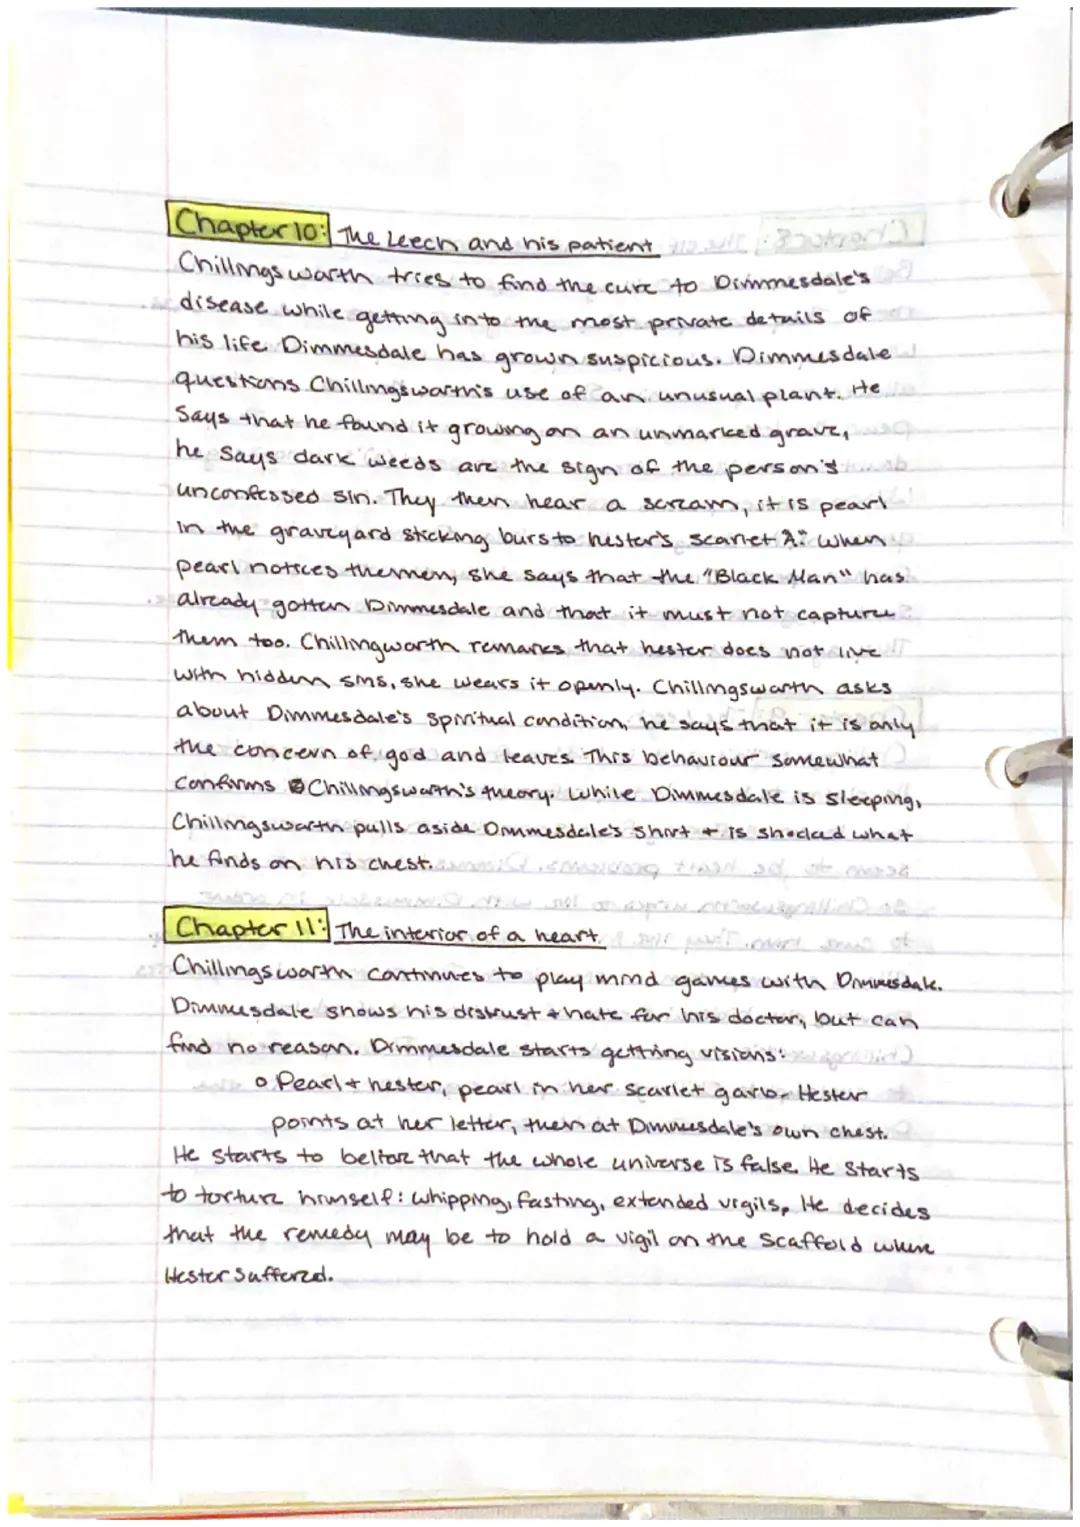 Chapter 10: The Leech and his patient
Chillingswarth tries to find the cure to Dimmesdale's
disease while getting into the most private details of
his life. Dimmesdale has grown suspicious. Dimmesdale
questions Chillingswarth's use of an unusual plant. He
Says that he found it growing on an unmarked grave,
he says dark weeds are the sign of the person's
unconfessed sin. They then hear a scream, it is pearl
in the graveyard sticking burs to hester's scarlet "A." When
pearl notices the men, she says that the "Black Man" has
already gotten Dimmesdale and that it must not capture
them too. Chillingworth remarks that hester does not live
with hidden sins, she wears it openly. Chillingswarth asks
about Dimmesdale's spiritual condition, he says that it is only
the concern of god and leaves. This behaviour somewhat
confirms Chillingswarth's theory. While Dimmesdale is sleeping,
Chillingswarth pulls aside Dimmesdale's shirt + is shocked what
he finds on his chest.
Chapter 11: The interior of a heart.
Chillingswarth continues to play mind games with Dimmesdale.
Dimmesdale shows his distrust + hate for his doctor, but can
find no reason. Dimmesdale starts getting visions:
o Pearl + hester, pearl in her scarlet garb. Hester
points at her letter, then at Dimmesdale's own chest.
He starts to that the whole universe is false. He starts
to torture himself: whipping, fasting, extended vigils, He decides
that the remedy may be to hold a vigil on the scaffold where
Hester suffered.